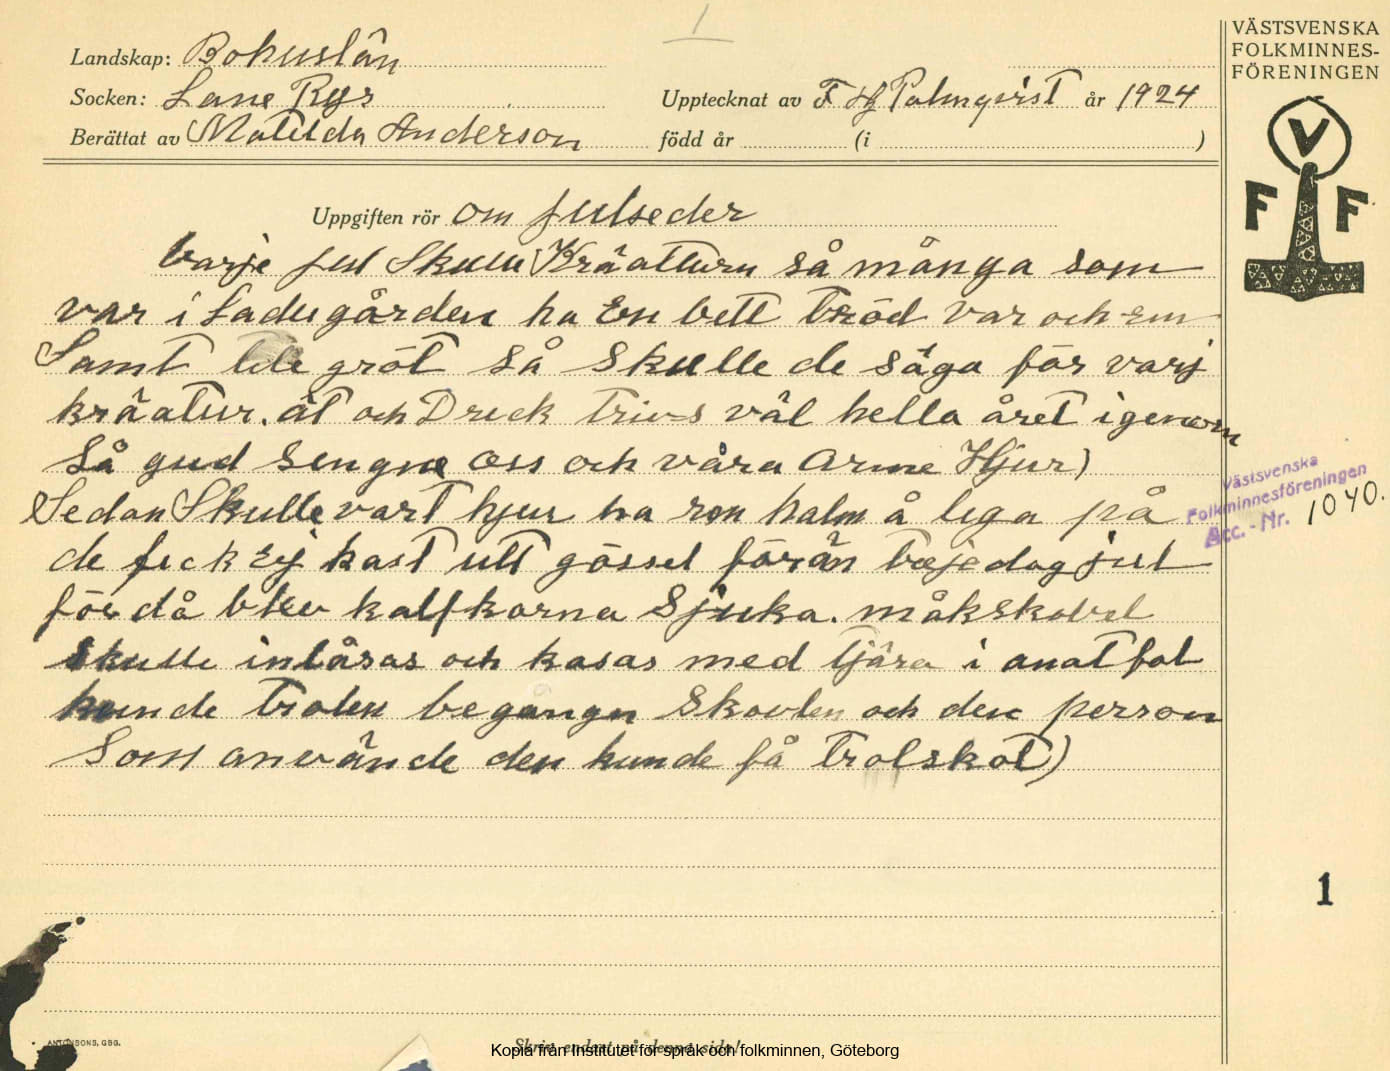 1
VÄSTSVENSKA
FOLKMINNES-
FÖRENINGEN
V
F F
Landskap: Bohuslän
Socken: Lane Rys Upptecknat av F Hj Palmqvist år 1924
Berättat av Matilda Anderson född år (i )
Uppgiften rör om julseder
Varje jul skulle Kräaturn så många som
var i Ladugården ha En bett bröd var och En
Samt lite gröt så Skulle de säga för varj
kräatur. ät och Druck trivs väl hella året igenom
Så gud sengne oss och våra arme Hjur)
Sedan Skulle vart hjur ha ren halm å liga på
de fick Ej kast utt gössel förän trejedag jul
för då blev kalfkorna Sjuka. måkskovel
skulle inlåsas och kasas med tjära i anat fal
kunde trolen begångn Skovlen och den person
Som använde den kunde få trolskot)
Västsvenska
Folkminnesföreningen
Acc.-Nr. 1040.
1
ANTONSONS, GBG.
Skriv endast på denna sida!
Kopia från Institutet för språk och folkminnen, Göteborg